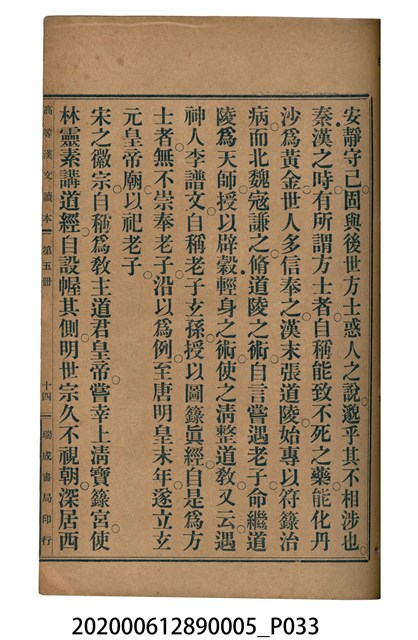 安靜守己固與後世方士惑人之說邈乎其不相涉也
秦漢之時有所謂方士者自稱能致不死之藥能化丹
沙爲黃金世人多信奉之漢末張道陵始專以符籙治
病而北魏寇謙之脩道陵之術自言嘗遇老子命繼道
陵爲天師授以辟穀輕身之術使之清整道教又云遇
神人李譜文自稱老子玄孫授以圖籙眞經自是爲方
士者無不崇奉老子沿以爲例至唐明皇末年遂立玄
元皇帝廟以祀老子
宋之徽宗自稱爲教主道君皇帝嘗幸上清寶籙宮使
林靈素講道經自設幄其側明世宗久不視朝深居西
高等漢文讀本 第五册 十四 瑞成書局印行
202000612890005_P033